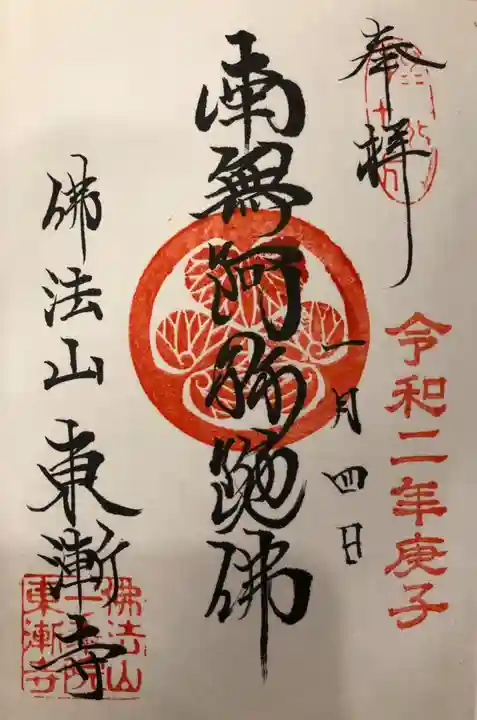 奉拝
令和二年庚子
一月四日
南無阿弥陀佛
佛法山東漸寺
佛法山
東漸寺